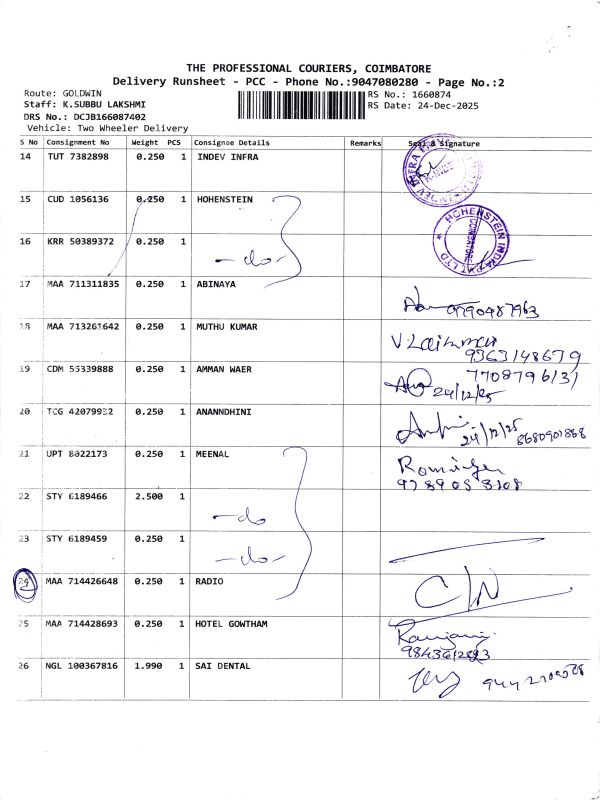 THE PROFESSIONAL COURIERS, COIMBATORE
Delivery Runsheet - PCC - Phone No.:9047080280 - Page No.:2
Route: GOLDWIN
RS No.: 1660874
Staff: K.SUBBU LAKSHMI
RS Date: 24-Dec-2025
DRS No.: DCJB166087402
Vehicle: Two Wheeler Delivery
S No Consignment No Weight PCS Consignee Details Remarks Seal & Signature
14 TUT 7382898 0.250 1 INDEV INFRA
15 CUD 1056136 0.250 1 HOHENSTEIN
HOHENSTEIN INDIA PVT LTD
COIMBATORE
16 KRR 50389372 0.250 1
-do-
17 MAA 711311835 0.250 1 ABINAYA
9790487963
18 MAA 713261642 0.250 1 MUTHU KUMAR
9363148679
19 CDM 55339888 0.250 1 AMMAN WAER
7708796131
24/12/25
20 TCG 42079932 0.250 1 ANANNDHINI
24/12/25
8680901868
21 UPT 8022173 0.250 1 MEENAL
97890 58108
22 STY 6189466 2.500 1
-do
23 STY 6189459 0.250 1
-do-
24 MAA 714426648 0.250 1 RADIO
C/N
25 MAA 714428693 0.250 1 HOTEL GOWTHAM
Ranjani
9843612893
26 NGL 100367816 1.990 1 SAI DENTAL